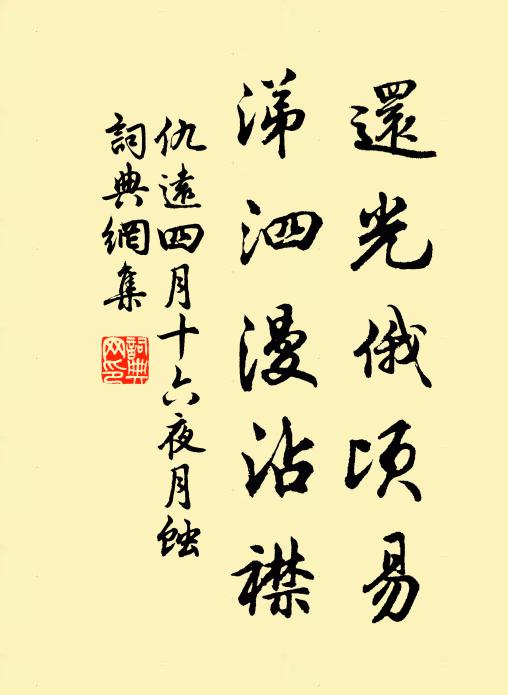 還光俄頃易
涕泗漫沾襟
仇遠四月十六夜月蝕
詞典網集
詞典網印